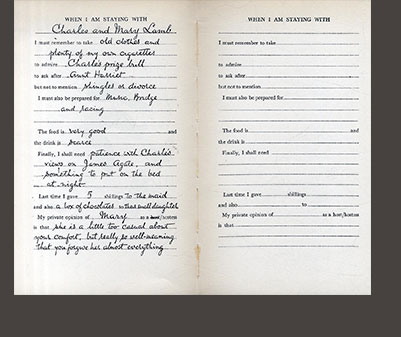 WHEN I AM STAYING WITH
Charles and Mary Lamb
I must remember to take old clothes and
plenty of my own cigarettes
to admire Charles's prize bull
to ask after Aunt Harriet
but not to mention shingles or divorce
I must also be prepared for Music, Bridge
and racing
The food is very good and
the drink is scarce
Finally, I shall need patience with Charles's
views on James Agate, and
something to put on the bed
at night
Last time I gave 5 shillings to the maid
and also a box of chocolates to their small daughter
My private opinion of Mary as a host/hostess
is that she is a little too casual about
your comfort, but really so well-meaning
that you forgive her almost everything
WHEN I AM STAYING WITH
I must remember to take
to admire
to ask after
but not to mention
I must also be prepared for
The food is and
the drink is
Finally, I shall need
Last time I gave shillings
and also to
My private opinion of as a host/hostess
is that